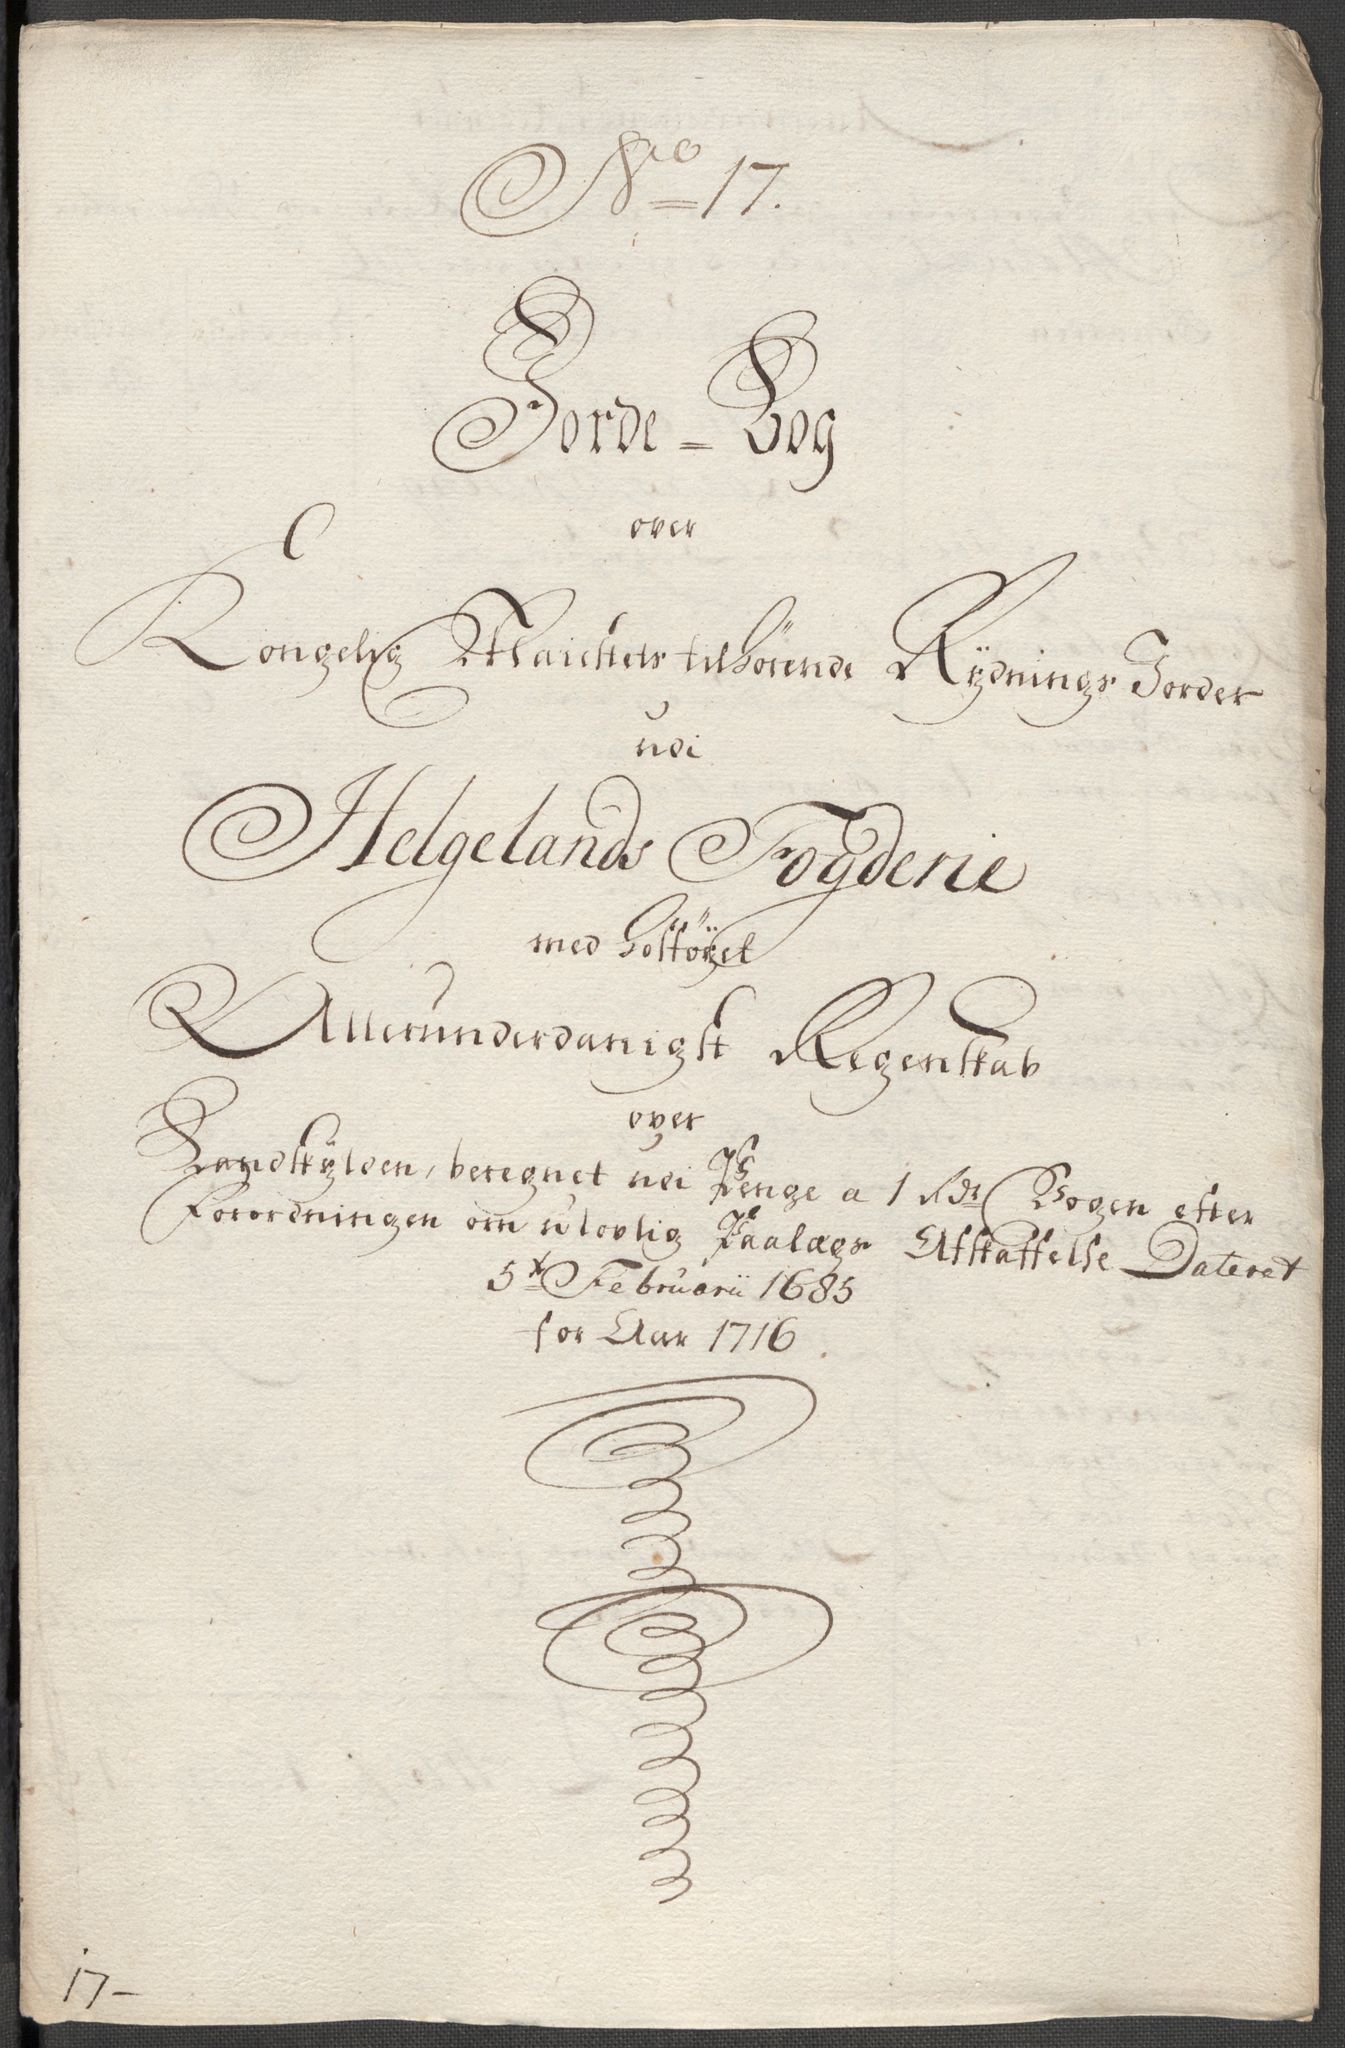 No 17.
Jorde=Bog
over
Kongelig Maiestets tilhörende Rÿdnings Jorder
udi
Helgelands Fogderie
med hosföÿet
Allerunderdanigst Regenskab
over
Landskÿlden, beregnet udi Penge a 1 Rdr Vogen efter
Forordningen om ulovlig Paalægs Afskaffelse Dateret
5t Februarii 1685
for Aar 1716
17-